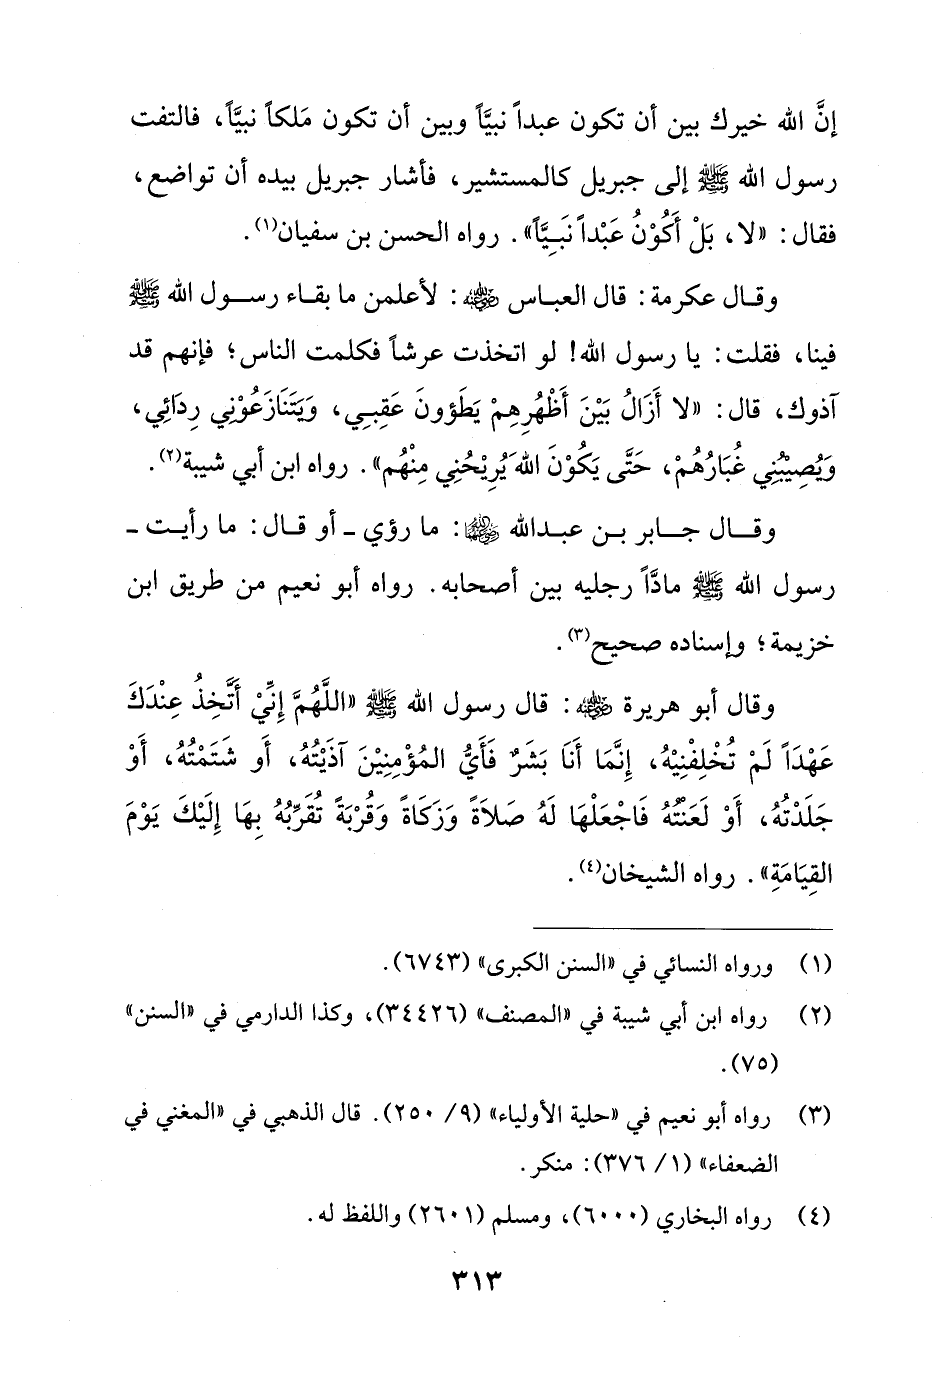 إنَّ الله خيرك بين أن تكون عبداً نبيَّاً وبين أن تكون مَلكاً نبيَّاً، فالتفت
رسول الله ﷺ إلى جبريل كالمستشير، فأشار جبريل بيده أن تواضع،
فقال: «لا، بَلْ أَكُوْنُ عَبْداً نَبِيَّاً». رواه الحسن بن سفيان(١).
وقال عكرمة: قال العباس رضي الله عنه: لأعلمن ما بقاء رسول الله ﷺ
فينا، فقلت: يا رسول الله! لو اتخذت عرشاً فكلمت الناس؛ فإنهم قد
آذوك، قال: «لا أَزَالُ بَيْنَ أَظْهُرِهِمْ يَطَؤونَ عَقِبي، وَيَتَنَازَعُوْنِي رِدَائِي،
وَيُصِيْبُنِي غُبَارُهُمْ، حَتَّى يَكُوْنَ اللهُ يُرِيْحُنِي مِنْهُم». رواه ابن أبي شيبة(٢).
وقال جابر بن عبدالله رضي الله عنهما: ما رؤي - أو قال: ما رأيت -
رسول الله ﷺ مادَّاً رجليه بين أصحابه. رواه أبو نعيم من طريق ابن
خزيمة؛ وإسناده صحيح(٣).
وقال أبو هريرة رضي الله عنه: قال رسول الله ﷺ «اللَّهُمَّ إِنِّيْ أَتَّخِذُ عِنْدَكَ
عَهْدَاً لَمْ تُخْلِفْنِيْهُ، إِنَّمَا أَنَا بَشَرٌ فَأَيُّ المُؤْمِنِيْنَ آذَيْتُهُ، أَو شَتَمْتُهُ، أَوْ
جَلَدْتُهُ، أَوْ لَعَنْتُهُ فَاجْعَلْهَا لَهُ صَلاَةً وَزَكَاةً وَقُرْبَةً تُقَرِّبُهُ بِهَا إِلَيْكَ يَوْمَ
القِيَامَةِ». رواه الشيخان(٤).
(١) ورواه النسائي في «السنن الكبرى» (٦٧٤٣).
(٢) رواه ابن أبي شيبة في «المصنف» (٣٤٤٢٦)، وكذا الدارمي في «السنن»
(٧٥).
(٣) رواه أبو نعيم في «حلية الأولياء» (٩/ ٢٥٠). قال الذهبي في «المغني في
الضعفاء» (١/ ٣٧٦): منكر.
(٤) رواه البخاري (٦٠٠٠)، ومسلم (٢٦٠١) واللفظ له.
٣١٣